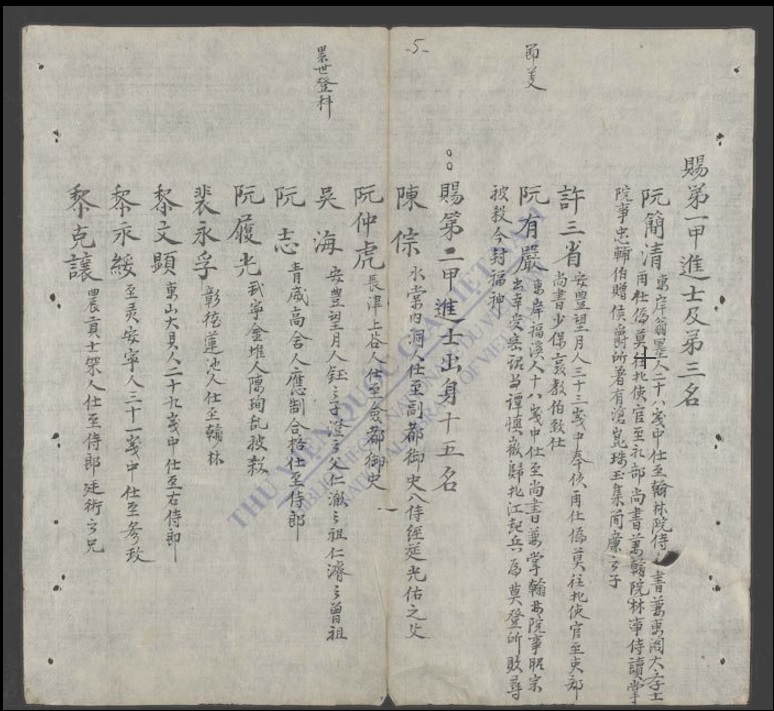 節義
賜第一甲進士及第三名
阮簡清 東岸翁墨人二十八歲中仕至翰林院侍書兼東閣大学士
再仕偽莫往北使官至礼部尚書兼翰院林事侍讀掌
院事忠輔伯贈侯爵所著有滄崑珠玉集簡廉之子
許三省 安豊望月人三十三歲中奉侍再仕偽莫往北使官至吏部
尚書少保敦教伯致仕
阮有嚴 東岸福溪人十八歲中仕至尚書兼掌翰林院事昭宗
出幸受密詔與譚慎徽歸北江起兵為莫登所敗尋
被殺今封福神
-5-
賜第二甲進士出身十五名
陳倧 水棠內洞人仕至副都御史入侍經筵光佑之父
阮仲虎 長津上谷人仕至僉都御史
累世登科
吳海 安豊望月人鈺之子澄之父仁澈之祖仁濬之曾祖
阮志 青威高舍人應制合格仕至侍郎
阮履光 武寧金堆人陳珣乱被殺
裴永孚 彰德蓮池人仕至翰林
黎文顯 東山大貝人二十九歲中仕至右侍郎
黎永綏 至灵安寧人三十一歲中仕至參政
黎克讓 農貢士架人仕至侍郎廷術之兄
THƯ VIỆN QUỐC GIA VIỆT NAM
NATIONAL LIBRARY OF VIETNAM